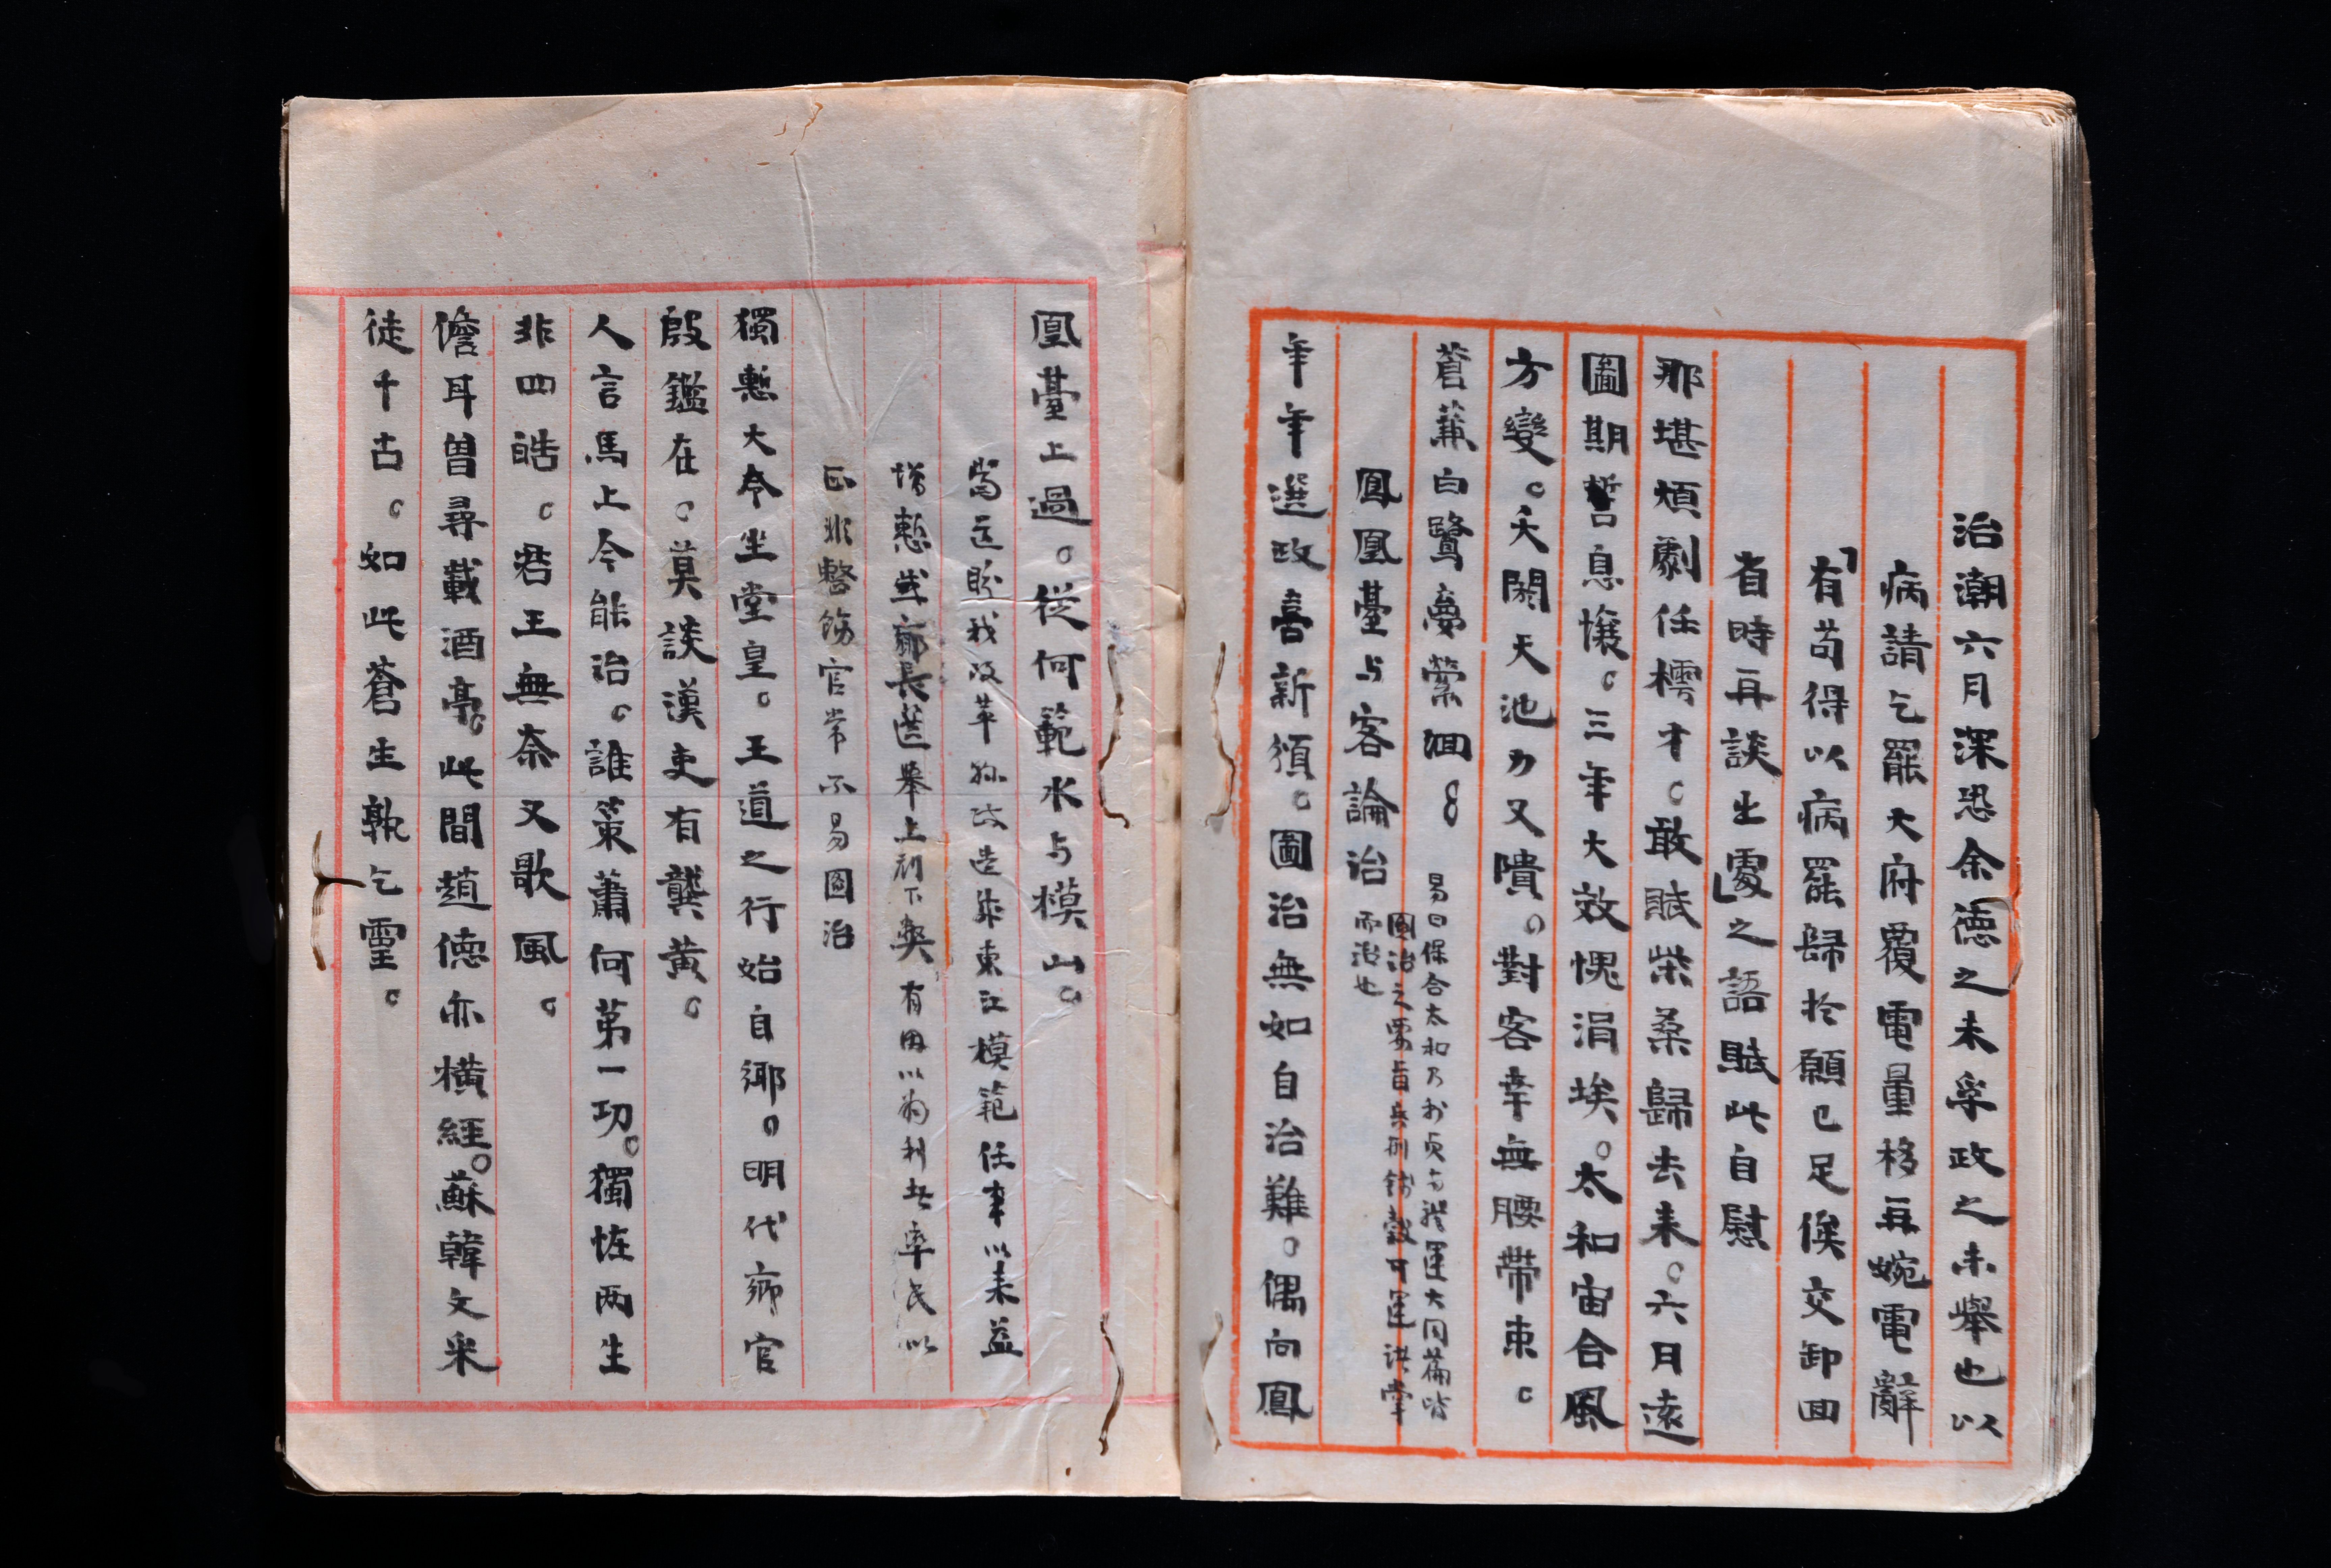 治潮六月深恐余德之未孚政之未舉也以
病請乞罷大府覆電量移再婉電辭
「有苟得以病罷歸於願已足俟交卸回
省時再談出處」之語賦此自慰
那堪煩劇任樗才。敢賦柴桑歸去來。六月遠
圖期暫息。三年大效愧涓埃。太和宙合風
方變。夭閼天池力又隤。對客幸無腰帶束。
蒼蒹白鷺夢縈洄。
易曰保合太和乃利貞 運大同篇皆
圖治之要旨兵刑錢穀可運諸掌
而治也
鳳凰臺与客論治
年年選政喜新頒。圖治無如自治難。偶向鳳
凰臺上過。從何範水与模山。
當這 我改革 政造成東江模範任事以來益
增慙 鄉長選舉上 下 有因以為利者率民以
正非整飭官常不易圖治
獨慙大令坐堂皇。王道之行始自鄉。明代鄉官
殷鑑在。莫談漢吏有龔黃。
人言馬上今能治。誰策蕭何第一功。獨恠兩生
非四皓。君王無奈又歌風。
儋耳曽尋載酒亭。此間趙德亦橫經。蘇韓文采
徒千古。如此蒼生孰乞靈。